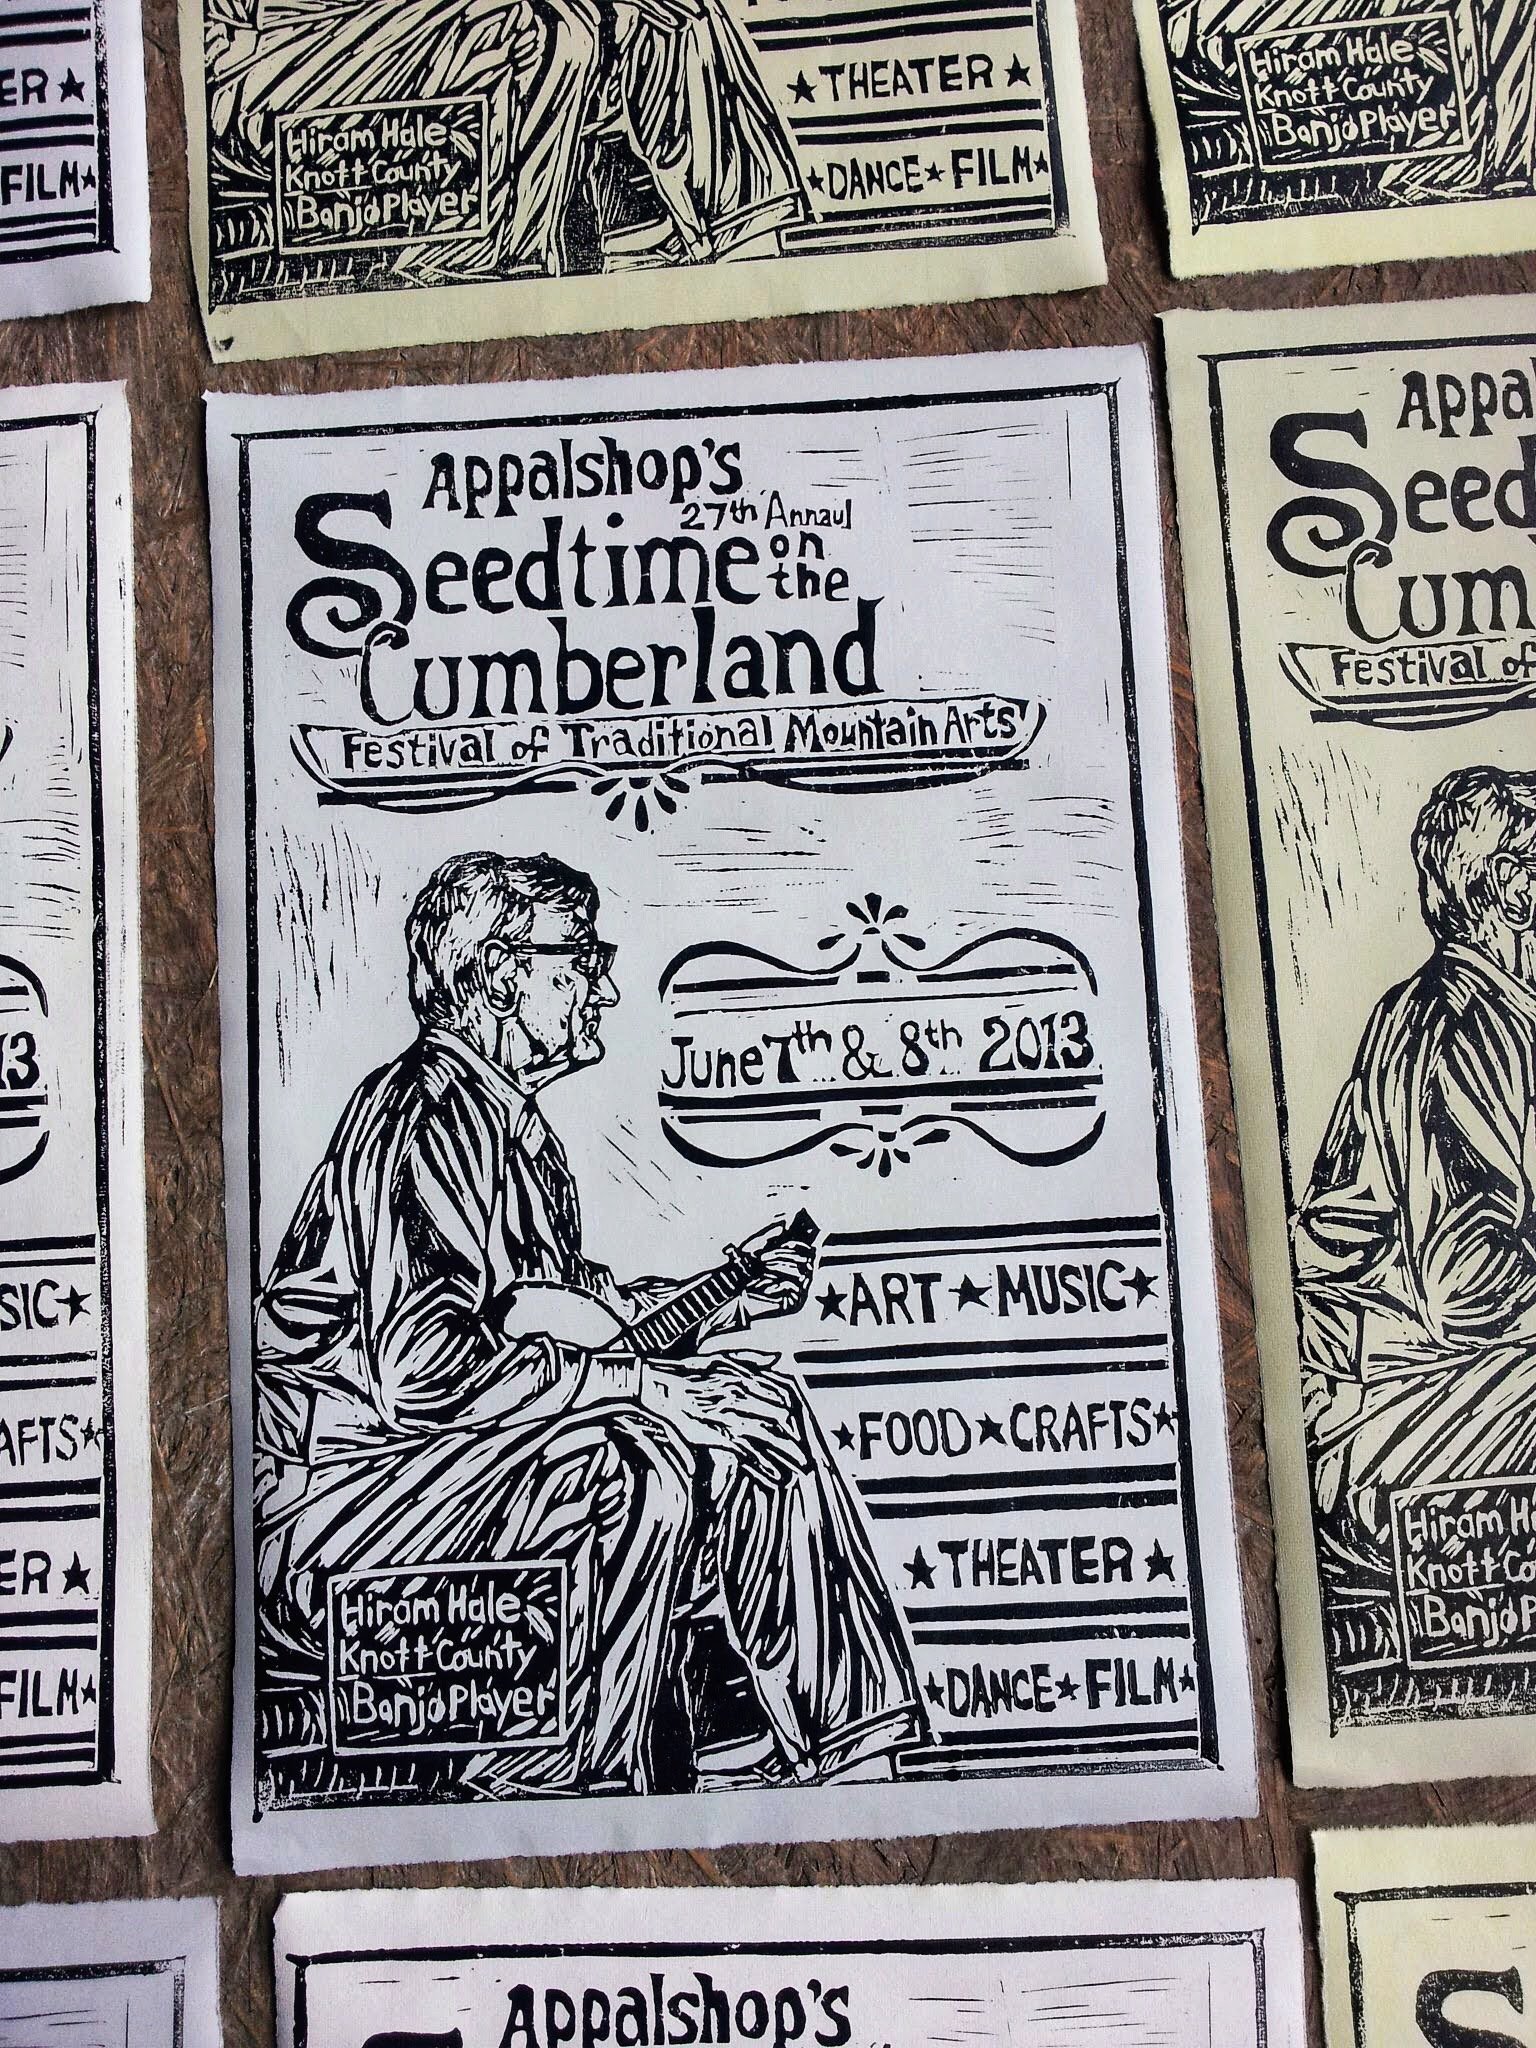 ER★
FILM★
★THEATER★
★DANCE★FILM★
Hiram Hale
Knott County
Banjo Player
Hiram Hale
Knott County
Banjo Player
Appalshop's
27th Annaul
Seedtime on the
Cumberland
Festival of Traditional Mountain Arts
June 7th & 8th 2013
★ART★MUSIC★
★FOOD★CRAFTS★
★THEATER★
★DANCE★FILM★
Hiram Hale
Knott County
Banjo Player
13
SIC★
AFTS★
ER★
FILM★
Appa
Seed
Cum
Festival of
Hiram H
Knott Co
Banjo P
Appalshop's
S